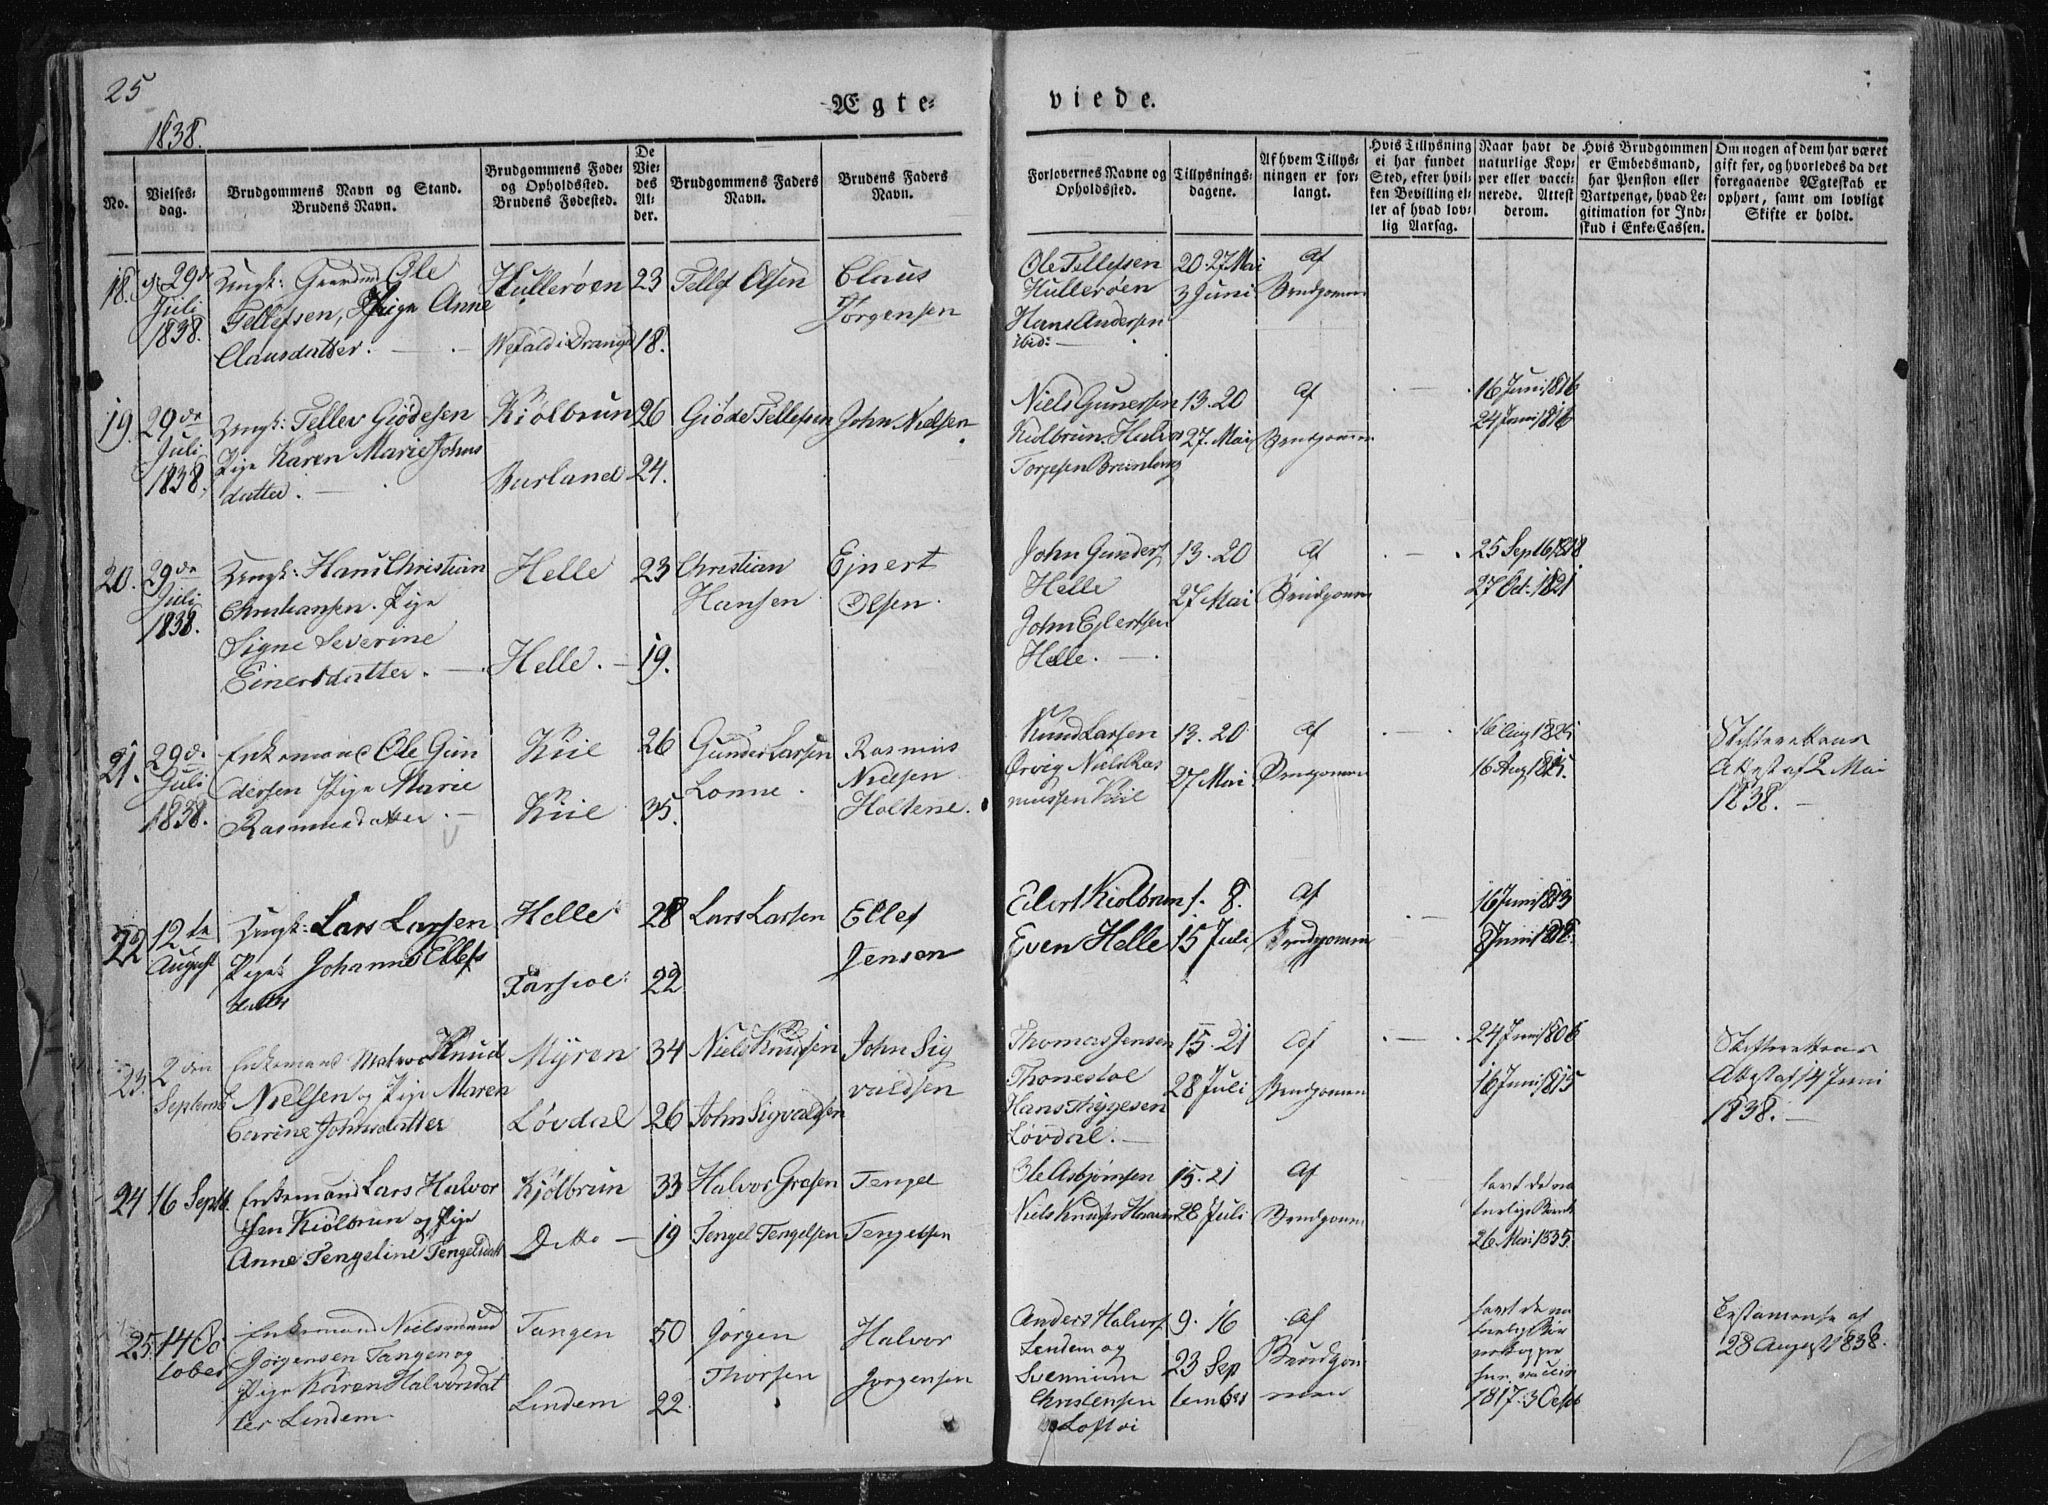 25
1838.
Ægte-
viede.
No.
Vielses-
dag.
Brudgommens Navn og Stand.
Brudens Navn.
Brudgommens Føde-
og Opholdssted.
Brudens Fødested.
De
Vie-
des
Al-
der.
Brudgommens Faders
Navn.
Brudens Faders
Navn.
Forlovernes Navne og
Opholdssted.
Tillysnings-
dagene.
Af hvem Tillys-
ningen er for-
langt.
Hvis Tillysning
ei har fundet
Sted, efter hvil-
ken Bevilling el-
ler af hvad lov-
lig Aarsag.
Naar havt de
naturlige Kop-
per eller vacci-
nerede. Attest
derom.
Hvis Brudgommen
er Embedsmand,
har Pension eller
Vartpenge, hvad Le-
gitimation for Ind-
skud i Enke-Cassen.
Om nogen af dem har været
gift for, og hvorledes da det
foregaaende Ægteskab er
ophørt, samt om lovligt
Skifte er holdt.
18.
29de
Juli
1838.
Ungk: Ole
Tellefsen, Pige Anne
Clausdatter.
Hullerøen
Wefald i Drangd
23
18.
Tellef Olsen
Claus
Jörgensen
Ole Tellefsen
Hullerøen
Hans Andersen
ibid:
20. 27 Mai
3 Juni
Af
Brudgomen
19.
29de
Juli
1838.
Ungk: Tellev Giödesen
Pige Karen Marie Johns
datter.
Kiölbrun
Burland
26
24.
Giöde Tellefsen
John Nielsen
Niels Gunersen
Kiölbrun. Halvor
13. 20
27. Mai
Af
Brudgommen
16 Juni 1816
24 Juni 1816
20.
29de
Juli
1838.
Ungk: Hans Christian
Christiansen. Pige
Signe Severine
Einersdatter.
Helle
Helle.
23
19.
Christian
Hansen
Ejnert
Olsen.
John Gunders
Helle
John Ejlertsen
Helle.
13. 20
27 Mai
Af
Brudgomen
25 Septb 1818
27 Oct. 1821
21.
29de
Juli
1838.
Enkemand Ole Gun
dersen Pige Marie
Rasmusdatter
Kiil
Kiil
26
35.
Gunder Larsen
Lonne.
Rasmus
Nielsen
Holtene.
Knud Larsen
Ørvig Niels Ras
mussen Kiil
13. 20
27 Mai
Af
Brudgomen
16 Aug 1825
16 Aug 1825.
Skifterettens
Attest af 2 Mai
1838.
22
12te
August
Ungk: Lars Larsen
Pige Johanne Ellefs
datter
Helle
28
22
Lars Larsen
Ellef
Jensen
Eilert Kiolbrun
Even Helle
1. 8.
15 Juli
Af
Brudgomen
16 Juni 1813
8 Juni 1818.
23.
2den
Septemb
Enkemand Knud
Nielsen og Pige Maren
Carine Johnsdatter
Myren
Lövdal
34
26
Niels Knudsen
John Sigvaldsen
John Sig
valdsen
Thomas Jensen
Thonestøl
Hans Thygesen
Lövdal.
15. 21
28 Juli
Af
Brudgomen
24 Juni 1806
16 Juni 1815
Skifterettens
Attest af 14 Juni
1838.
24
16 Septb.
Enkemand Lars Halvor
sen Kiölbrun og Pige
Anne Tengeline Tengelsdatt
Kiölbrun
Ditto
33
19
Halvor Gresen
Tengel Tengelsen
Tengel
Tengelsen
Ole Asbjörnsen
Niels Knudsen
15. 21
28 Juli
Af
Brudgomen
havt de na
turlige
26 Mai 1835.
25.
14 Oc
tober
Enkemand Nielsmund
Jörgensen Tangen og
Pige Karen Halvorsdat
ter Lindem
Tangen
Lindem
50
22.
Jörgen
Thorsen
Halvor
Jorgensen
Anders Halvors
Lindem og
Svennum
Christensen
9. 16
23 Sep
tember
Af
Brudgom
men
havt de na
1817. 3 Octob
Testamente af
28 August 1838.